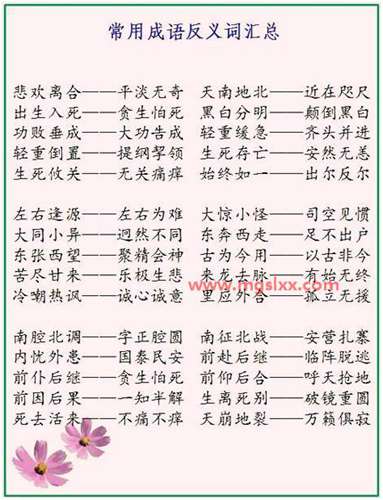 常用成语反义词汇总
悲欢离合——平淡无奇 天南地北——近在咫尺
出生入死——贪生怕死 黑白分明——颠倒黑白
功败垂成——大功告成 轻重缓急——齐头并进
轻重倒置——提纲挈领 生死存亡——安然无恙
生死攸关——无关痛痒 始终如一——出尔反尔
左右逢源——左右为难 大惊小怪——司空见惯
大同小异——迥然不同 东奔西走——足不出户
东张西望——聚精会神 古为今用——以古非今
www.mgslxx.com
苦尽甘来——乐极生悲 来龙去脉——有始无终
冷嘲热讽——诚心诚意 里应外合——孤立无援
南腔北调——字正腔圆 南征北战——安营扎寨
内忧外患——国泰民安 前赴后继——临阵脱逃
前仆后继——贪生怕死 前仰后合——呼天抢地
前因后果——一知半解 生离死别——破镜重圆
死去活来——不痛不痒 天崩地裂——万籁俱寂